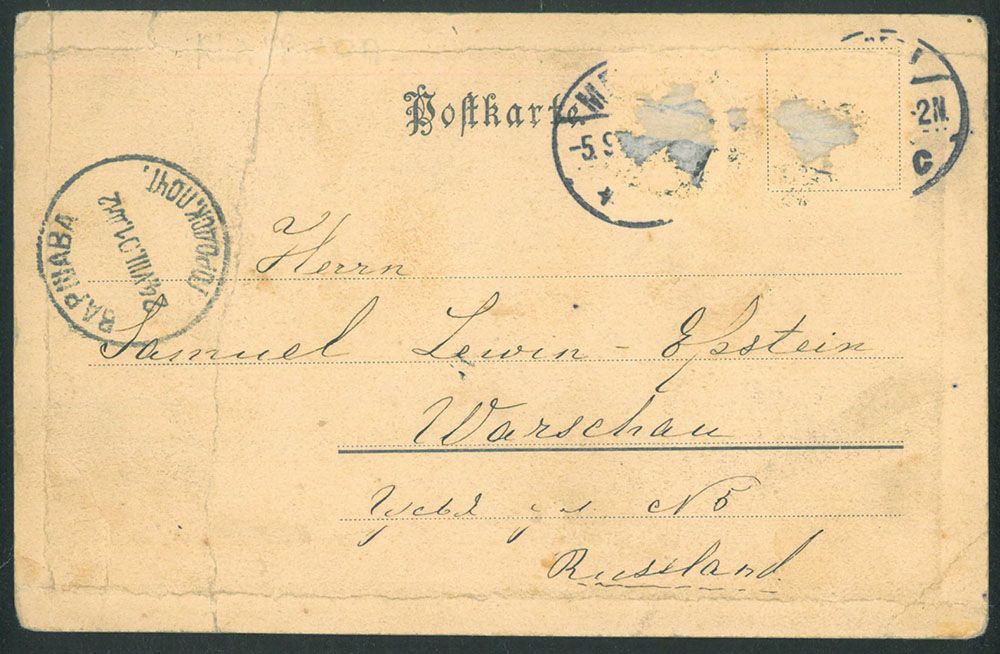 Postkarte
-5.9
-2N.
C
ВАРШАВА
24.VIII.01
ГОРОДСК. ПОЧТ.
Herrn
Samuel Lewin - Epstein
Warschau
ул № 5
Russland